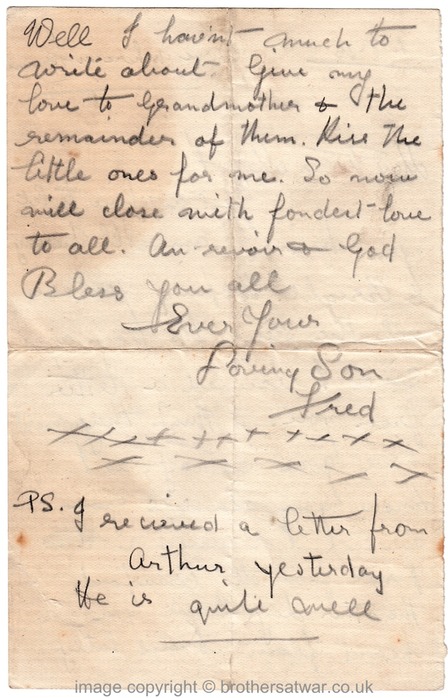 Well I havn't much to
write about. Give my
love to Grandmother & the
remainder of them. Kiss the
little ones for me. So now
will close with fondest love
to all. Au-revoir & God
Bless you all
Ever Your
Loving Son
Fred
x x x x x x x x x x
x x x x x
PS. I recieved a letter from
Arthur yesterday
He is quite well
image copyright © brothersatwar.co.uk